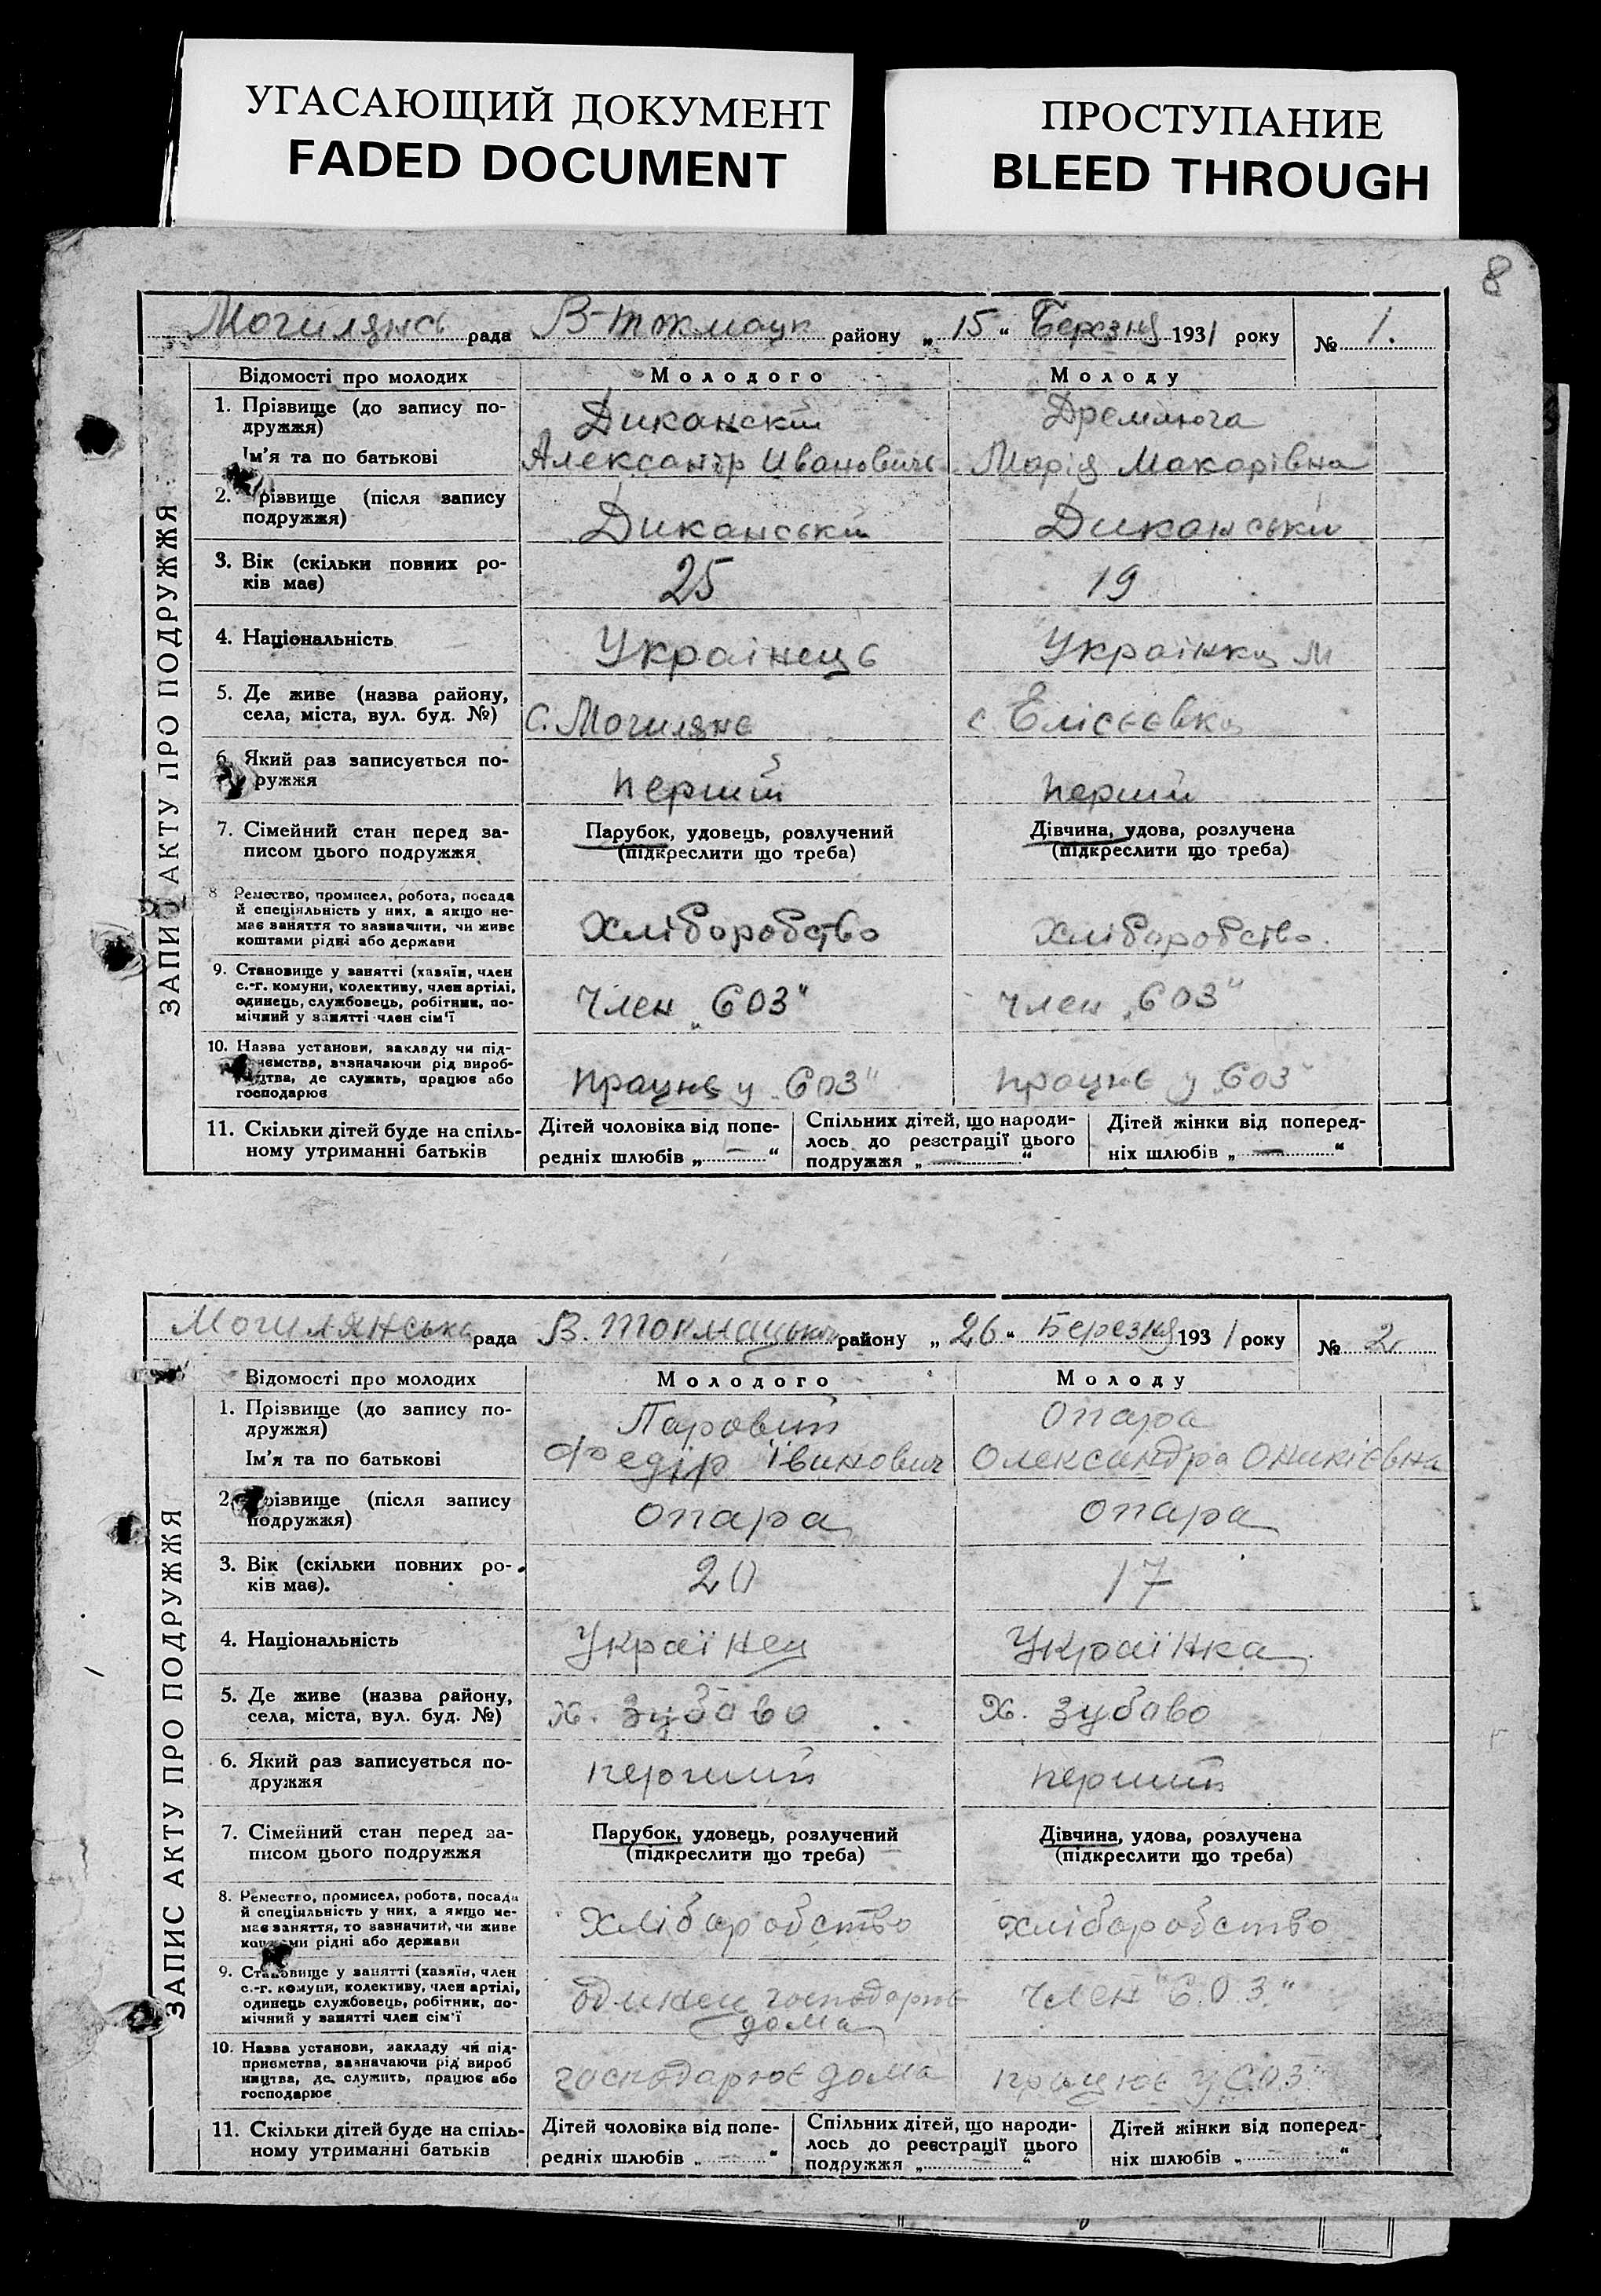 УГАСАЮЩИЙ ДОКУМЕНТ
FADED DOCUMENT
ПРОСТУПАНИЕ
BLEED THROUGH
8
Могилянсь рада В-токмацк району „15“ Березня 1931 року № 1.
ЗАПИС АКТУ ПРО ПОДРУЖЖЯ
Відомості про молодих Молодого Молоду
1. Прізвище (до запису по-
дружжя) Диканскій Дремлюга
Ім'я та по батькові Александр Ивановичь Марія Макарівна
2. Прізвище (після запису
подружжя) Диканській Диканськи
3. Вік (скільки повних ро-
ків має) 25 19
4. Національність Українець Українка
5. Де живе (назва району,
села, міста, вул. буд. №) С. Могиляне с Елісєєвка
6. Який раз записується по-
дружжя перший перший
7. Сімейний стан перед за-
писом цього подружжя
Парубок, удовець, розлучений
(підкреслити що треба)
Дівчина, удова, розлучена
(підкреслити що треба)
8 Ремество, промисел, робота, посада
й спеціяльність у них, а якщо не-
має заняття то зазначити, чи живе
коштами рідні або держави
Хліборобство Хліборобство.
9. Становище у занятті (хазяїн, член
с.-г. комуни, колективу, член артілі,
одинець, службовець, робітник, по-
мічний у занятті член сім'ї
Член „СОЗ“ Член „СОЗ“
10. Назва установи, закладу чи під-
приємства, зазначаючи рід вироб-
ництва, де служить, працює або
господарює
працює у „СОЗ“ працює у „СОЗ“
11. Скільки дітей буде на спіль-
ному утриманні батьків
Дітей чоловіка від попе-
редніх шлюбів „—“
Спільних дітей, що народи-
лось до реєстрації цього
подружжя „—“
Дітей жінки від поперед-
ніх шлюбів „—“
Могилянська рада В. Токмацького району „26“ Березня 1931 року № 2
ЗАПИС АКТУ ПРО ПОДРУЖЖЯ
Відомості про молодих Молодого Молоду
1. Прізвище (до запису по-
дружжя) Паровий Опара
Ім'я та по батькові Федір Іванович Олександра Оникієвна
2. Прізвище (після запису
подружжя) Опара Опара
3. Вік (скільки повних ро-
ків має). 20 17
4. Національність Українец Українка
5. Де живе (назва району,
села, міста, вул. буд. №) Х. Зубово Х. Зубово
6. Який раз записується по-
дружжя перший перший
7. Сімейний стан перед за-
писом цього подружжя
Парубок, удовець, розлучений
(підкреслити що треба)
Дівчина, удова, розлучена
(підкреслити що треба)
8. Ремество, промисел, робота, посада
й спеціяльність у них, а якщо не-
має заняття, то зазначити, чи живе
коштами рідні або держави
Хліборобство хліборобство
9. Становище у занятті (хазяїн, член
с.-г. комуни, колективу, член артілі,
одинець службовець, робітник, по-
мічний у занятті член сім'ї
одинец господарює
дома
Член "С.О.З."
10. Назва установи, закладу чи під-
приємства, зазначаючи рід вироб
ництва, де служить, працює або
господарює
господарює дома працює у С.О.З."
11. Скільки дітей буде на спіль-
ному утриманні батьків
Дітей чоловіка від попе-
редніх шлюбів „—“
Спільних дітей, що народи-
лось до реєстрації цього
подружжя „“
Дітей жінки від поперед-
ніх шлюбів „—“